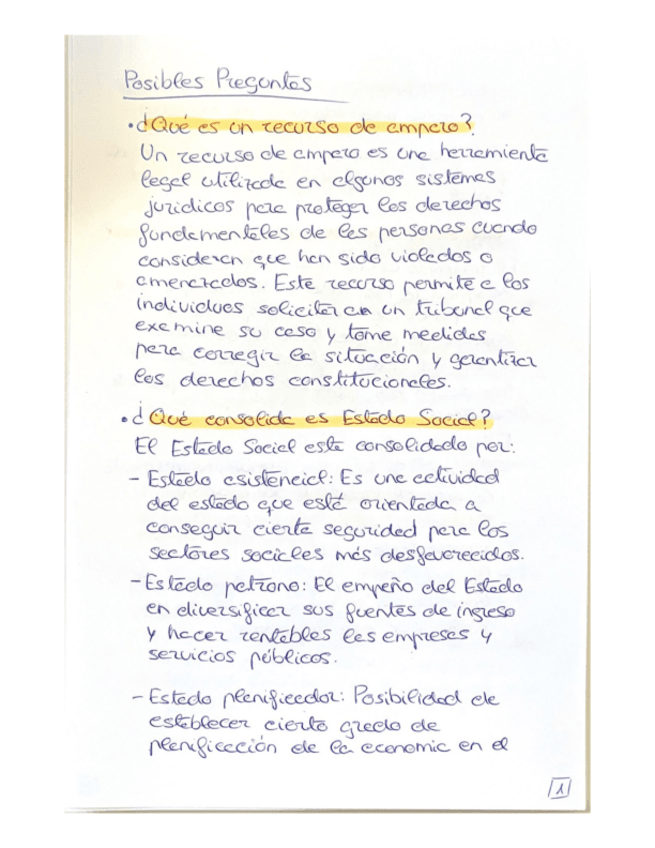 Posibles Preguntas
• ¿Qué es un recurso de amparo?
Un recurso de amparo es una herramienta
legal utilizada en algunos sistemas
jurídicos para proteger los derechos
fundamentales de las personas cuando
consideran que han sido violados o
amenazados. Este recurso permite a los
individuos solicitar a un tribunal que
examine su caso y tome medidas
para corregir la situación y garantizar
los derechos constitucionales.
• ¿Qué consolida es Estado Social?
El Estado Social esta consolidado por:
- Estado asistencial: Es una actividad
del estado que está orientada a
conseguir cierta seguridad para los
sectores sociales más desfavorecidos.
- Estado patrono: El empeño del Estado
en diversificar sus fuentes de ingreso
y hacer rentables las empresas y
servicios públicos.
- Estado planificador: Posibilidad de
establecer cierto grado de
planificación de la economia en el
1